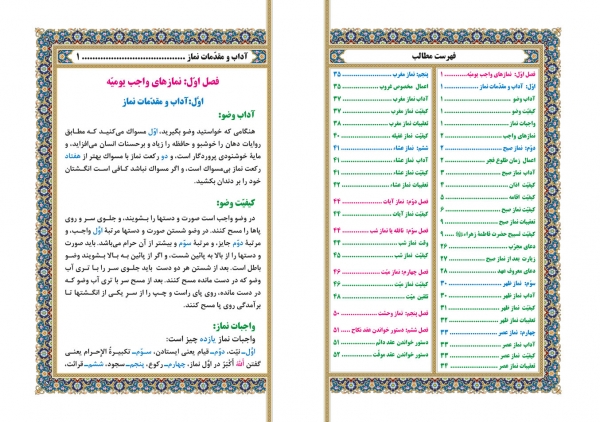 فهرست مطالب
فصل اوّل: نمازهای واجب یومیّه ۱
اوّل: آداب و مقدّمات نماز ۱
آداب وضو ۱
کیفیّت وضو ۱
واجبات نماز ۱
نمازهای واجب ۲
دوّم: نماز صبح ۲
اعمال زمان طلوع فجر ۲
آداب نماز صبح ۲
کیفیّت اذان ۳
کیفیّت اقامه ۵
کیفیّت نماز صبح ۶
تعقیبات نماز صبح ۹
کیفیّت تسبیح حضرت فاطمهٔ زهراء
دعای مجرّب ۲۶
زیارت بعد از نماز صبح ۲۷
دعای معروف عهد ۲۸
سوّم: نماز ظهر ۳۰
آداب نماز ظهر ۳۰
کیفیّت نماز ظهر
تعقیبات نماز ظهر
چهارم: نماز عصر ۳۳
آداب نماز عصر ۳۳
کیفیّت نماز عصر ۳۳
تعقیبات نماز عصر ۳۳
پنجم: نماز مغرب ۳۵
اعمال مخصوص غروب ۳۵
آداب نماز مغرب ۳۷
کیفیّت نماز مغرب ۳۷
تعقیبات نماز مغرب ۳۸
کیفیّت نماز غفیله ۴۰
ششم: نماز عشاء ۴۱
آداب نماز عشاء ۴۱
کیفیّت نماز عشاء ۴۲
تعقیبات نماز عشاء ۴۲
فصل دوّم: نماز آیات ۴۴
کیفیّت نماز آیات ۴۴
فصل سوّم: نافله یا نماز شب ۴۴
وقت نماز شب ۴۴
کیفیّت نماز شب
فصل چهارم: نماز میّت ۴۶
کیفیّت نماز میّت ۴۶
تلقین میّت ۴۸
فصل پنجم: نماز وحشت ۵۰
فصل ششم: دستور خواندن عقد نکاح ۵۱
دستور خواندن عقد دائم ۵۱
دستور خواندن عقد موقّت ۵۲
آداب و مقدّمات نماز ........ ۱
فصل اوّل: نمازهای واجب یومیّه
اوّل: آداب و مقدّمات نماز
آداب وضو:
هنگامی که خواستید وضو بگیرید، اوّل مسواک می‌کنید که مطابق
روایات دهان را خوشبو و حافظه را زیاد و برحسنات انسان می‌افزاید، و
مایهٔ خوشنودی پروردگار است، و دو رکعت نماز با مسواک بهتر از هفتاد
رکعت نماز بی‌مسواک است، و اگر مسواک نباشد کافی است انگشتان
خود را بر دندان بکشید.
کیفیّت وضو:
در وضو واجب است صورت و دستها را بشویند، و جلوی سر و روی
پاها را مسح کنند. در وضو شستن صورت و دستها مرتبهٔ اوّل واجب، و
مرتبهٔ دوّم جایز، و مرتبهٔ سوّم و بیشتر از آن حرام می‌باشد. باید صورت
و دستها را از بالا به پائین شست، و اگر از پائین به بالا بشویند وضو
باطل است. بعد از شستن هر دو دست باید جلوی سر را با تری آب
وضو که در دست مانده مسح کنند. بعد از مسح سر با تری آب وضو که
در دست مانده، روی پای راست و چپ را از سر یکی از انگشتها تا
برآمدگی روی پا مسح کنند.
واجبات نماز:
واجبات نماز یازده چیز است:
اوّل ـ نیّت، دوّم ـ قیام یعنی ایستادن، سوّم ـ تکبیرةُ الإحرام یعنی
گفتن اَللهُ اَکْبَرُ در اوّل نماز، چهارم ـ رکوع، پنجم ـ سجود، ششم ـ قرائت،